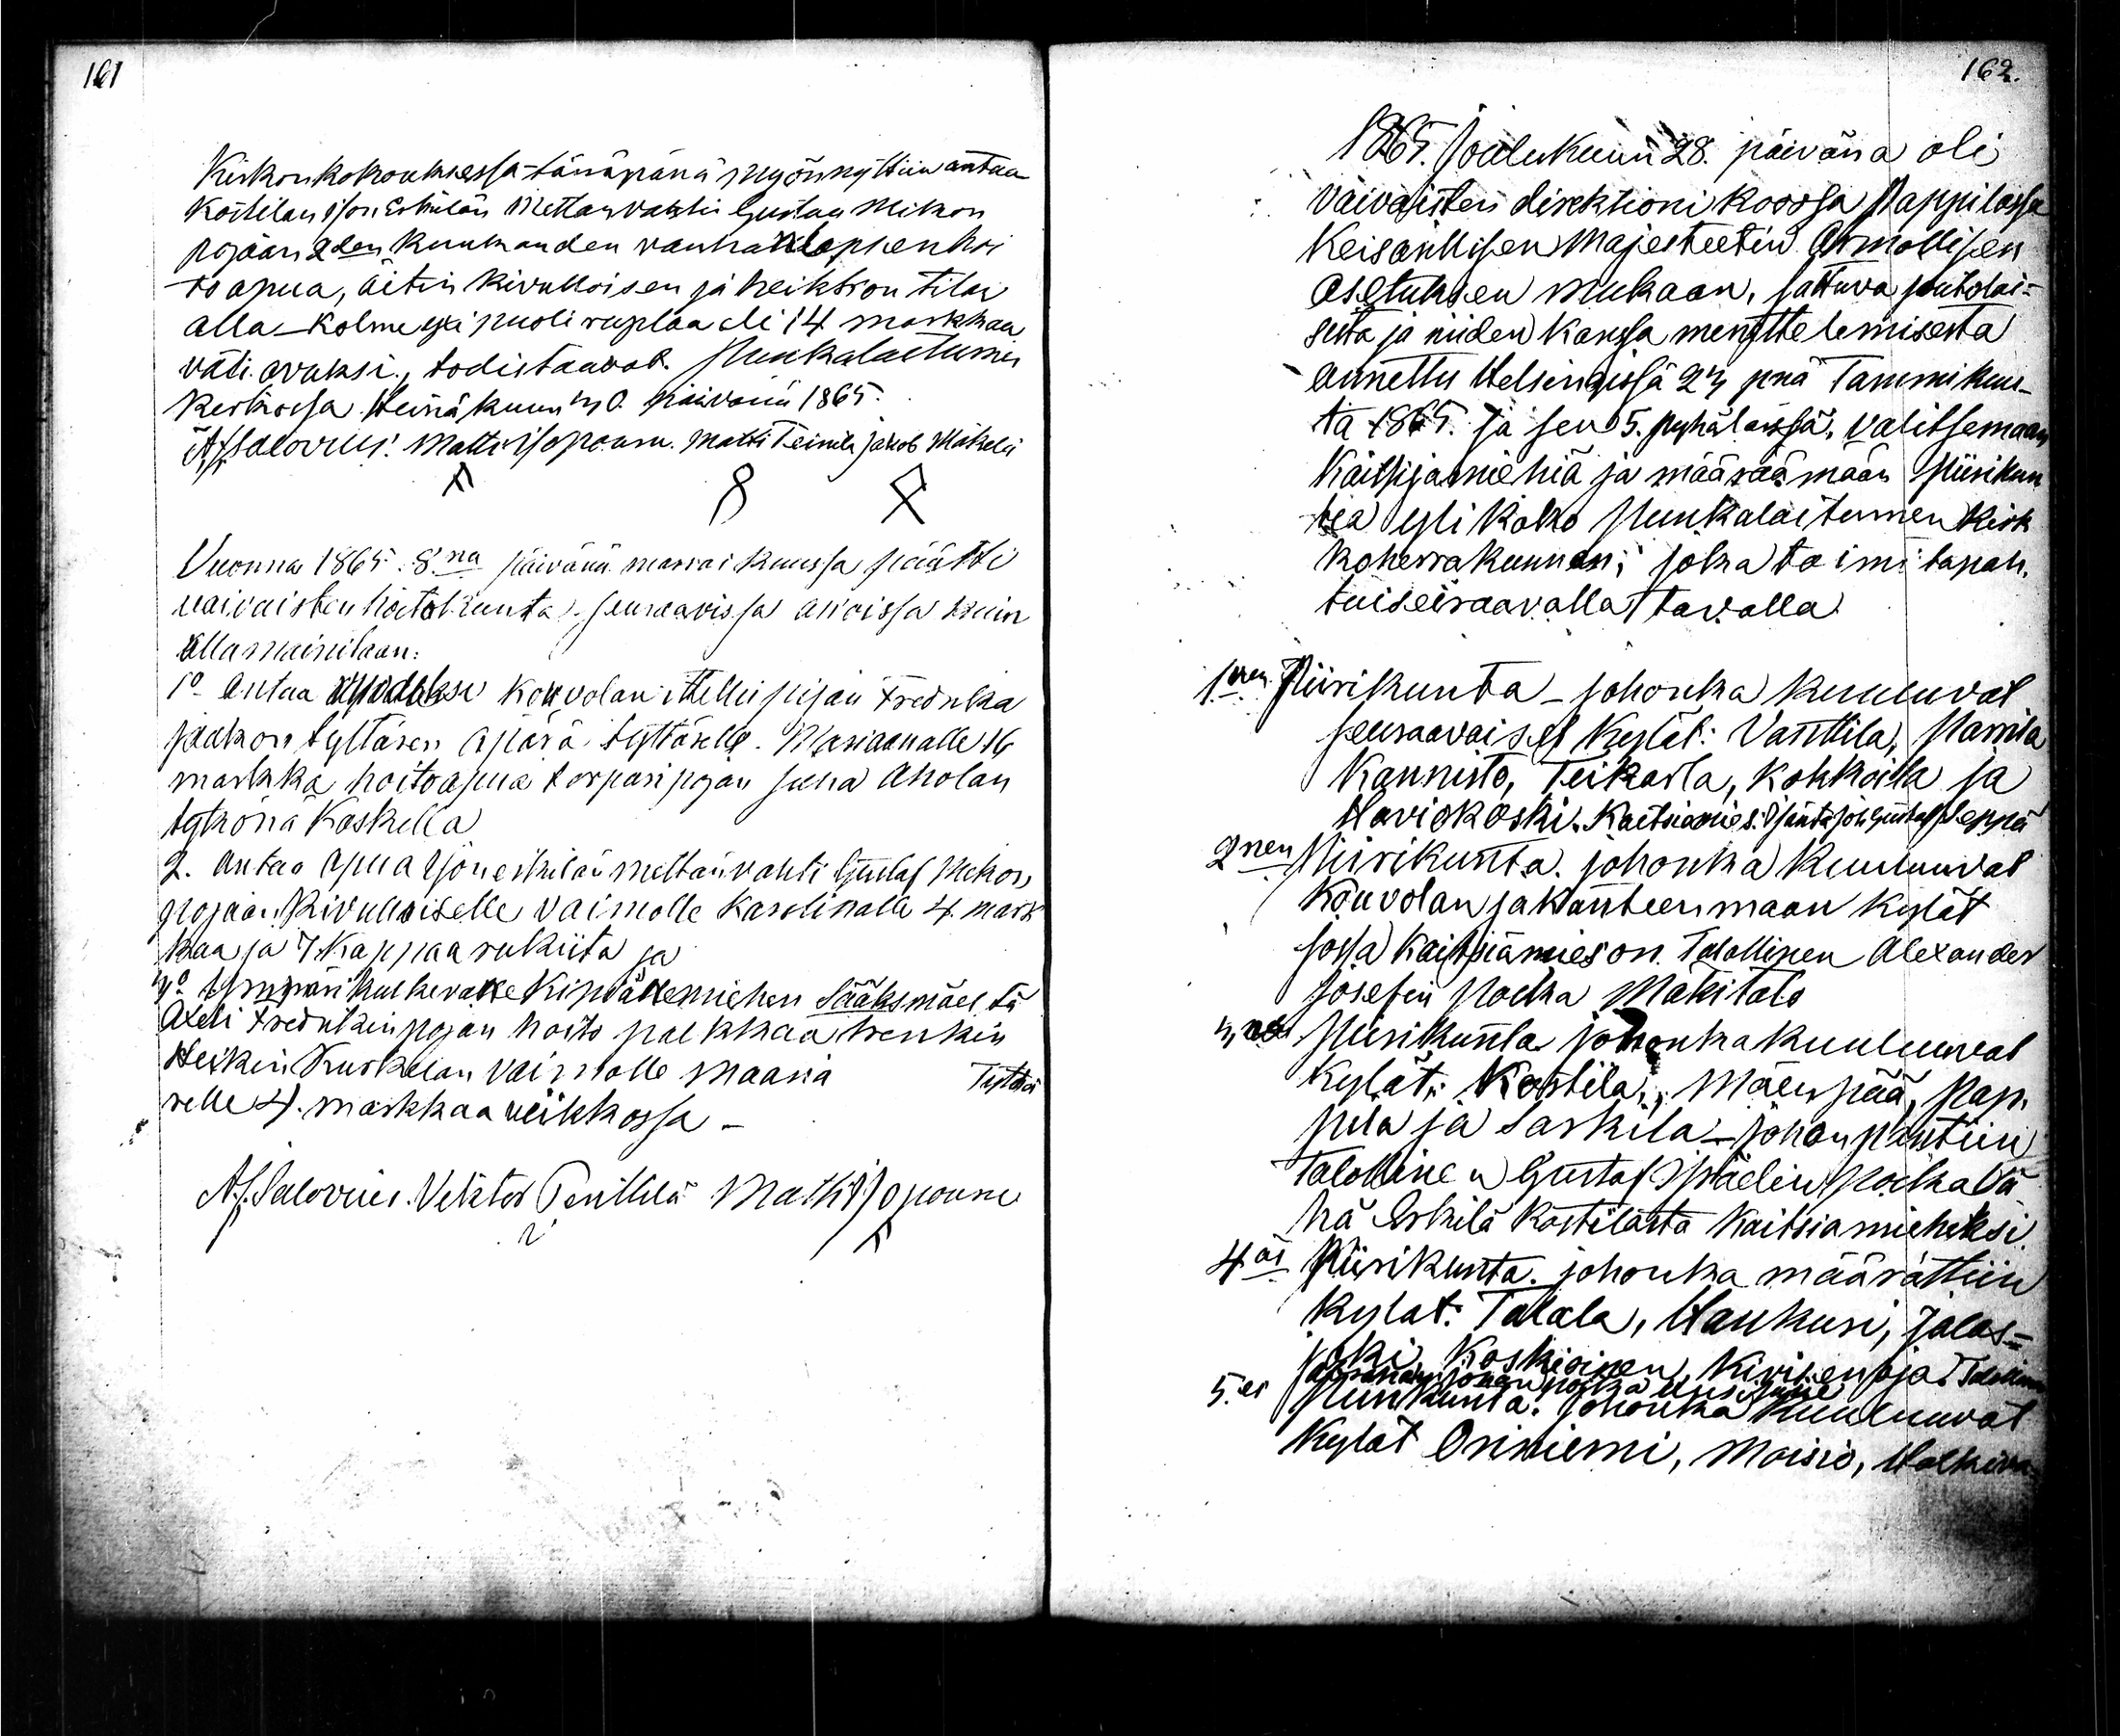 161
Kirkonkokouksessa tänäpänä myönnyttiin antaa
Kostilan Ison Eskilän Mettanvahti Gustav Mikon
pojan 2den kuukauden vanhan lapsen hoi
to apua, äitin kivulloisen ja heikkon tilan
alla – Kolme ja puoli ruplaa eli 14 markkaa
väti avuksi., todistaavat. Punkalaitumen
Kirkossa Heinäkuun 30. päivänä 1865.
A.F. Salovius. Matti Isopouru. Matti Teinilä Jakob Mäkelä
Vuonna 1865. 8na päivänä marraskuussa päätti
vaivaisten hoitokunta seuraavissa asioissa kuin
allamainitaan:
1o Antaa Kouvolan itellispijan Fredrika
Jaakon tyttären äpärä tyttärelle. Mariaanalle 16
markka hoitoapua torparipojan Juha Aholan
tykönä Koskella
2. Antaa apua Ison eskilän mettänvahti Gustaf Mikon
pojan Kivulloiselle vaimolle Karolinalle 4. mark
kaa ja 7 Kappaa rukiita ja
3o Ympäri kulkevalle Sääksmäeltä
Axeli Fredrikin pojan hoito palkkaa trenkin
Heikin Kurkelan vaimolle Maaria Tyttä
relle 4. markkaa viikkossa –
A.F. Salovius. Vihtor Penttilä Matti Isopouru
162.
1865. Joulukuun 28. päivänä oli
Vaivaisten direktioni koossa Pappilassa
Keisarillisen Majesteetin Armollisen
Asetuksen mukaan,
sista ja niiden kanssa menettelemisestä
annettu Helsingissä 23 pnä Tammikuu-
ta 1865. ja sen 5. pykälässä, valitsemaan
Kaitsijamiehiä ja määräämään Piirikun
tia yli koko Punkalaitumen Kirk
koherrakunnan; joka toimi tapah.
tui seuraavalla tavalla
1nen Piirikunta – johonka kuuluvat
seuraavaiset Kylät: Vanttila, Parrila
Kannisto, Teikarla, Kohkoila ja
Haviokoski. Kaitsiamies. Isäntä Joh Gustaf Seppä
2nen Piirikunta. johonka Kuuluuvat
Kouvolan ja Kanteenmaan Kylät
jossa Kaitsiämies on Talollinen Alexander
Josefin Poika Mäkitalo
3as Piirikunta johonka kuuluuvat
Kylät: Kostila, Mäenpää, Pap.
pila ja Sarkila – johon pantiin
Talollinen Gustaf Isräelin Poika Vä
hä Eskilä Kostilasta Kaitsiamieheksi.
4äs Piirikunta. johonka määrättiin
Kylät: Talala, Haukuri, Jalas=
joki, Koskioinen, Kivisenoja. Talollinen
5.es Piirikunta. johonka kuuluuvat
Kylät Oriniemi, Moisio,